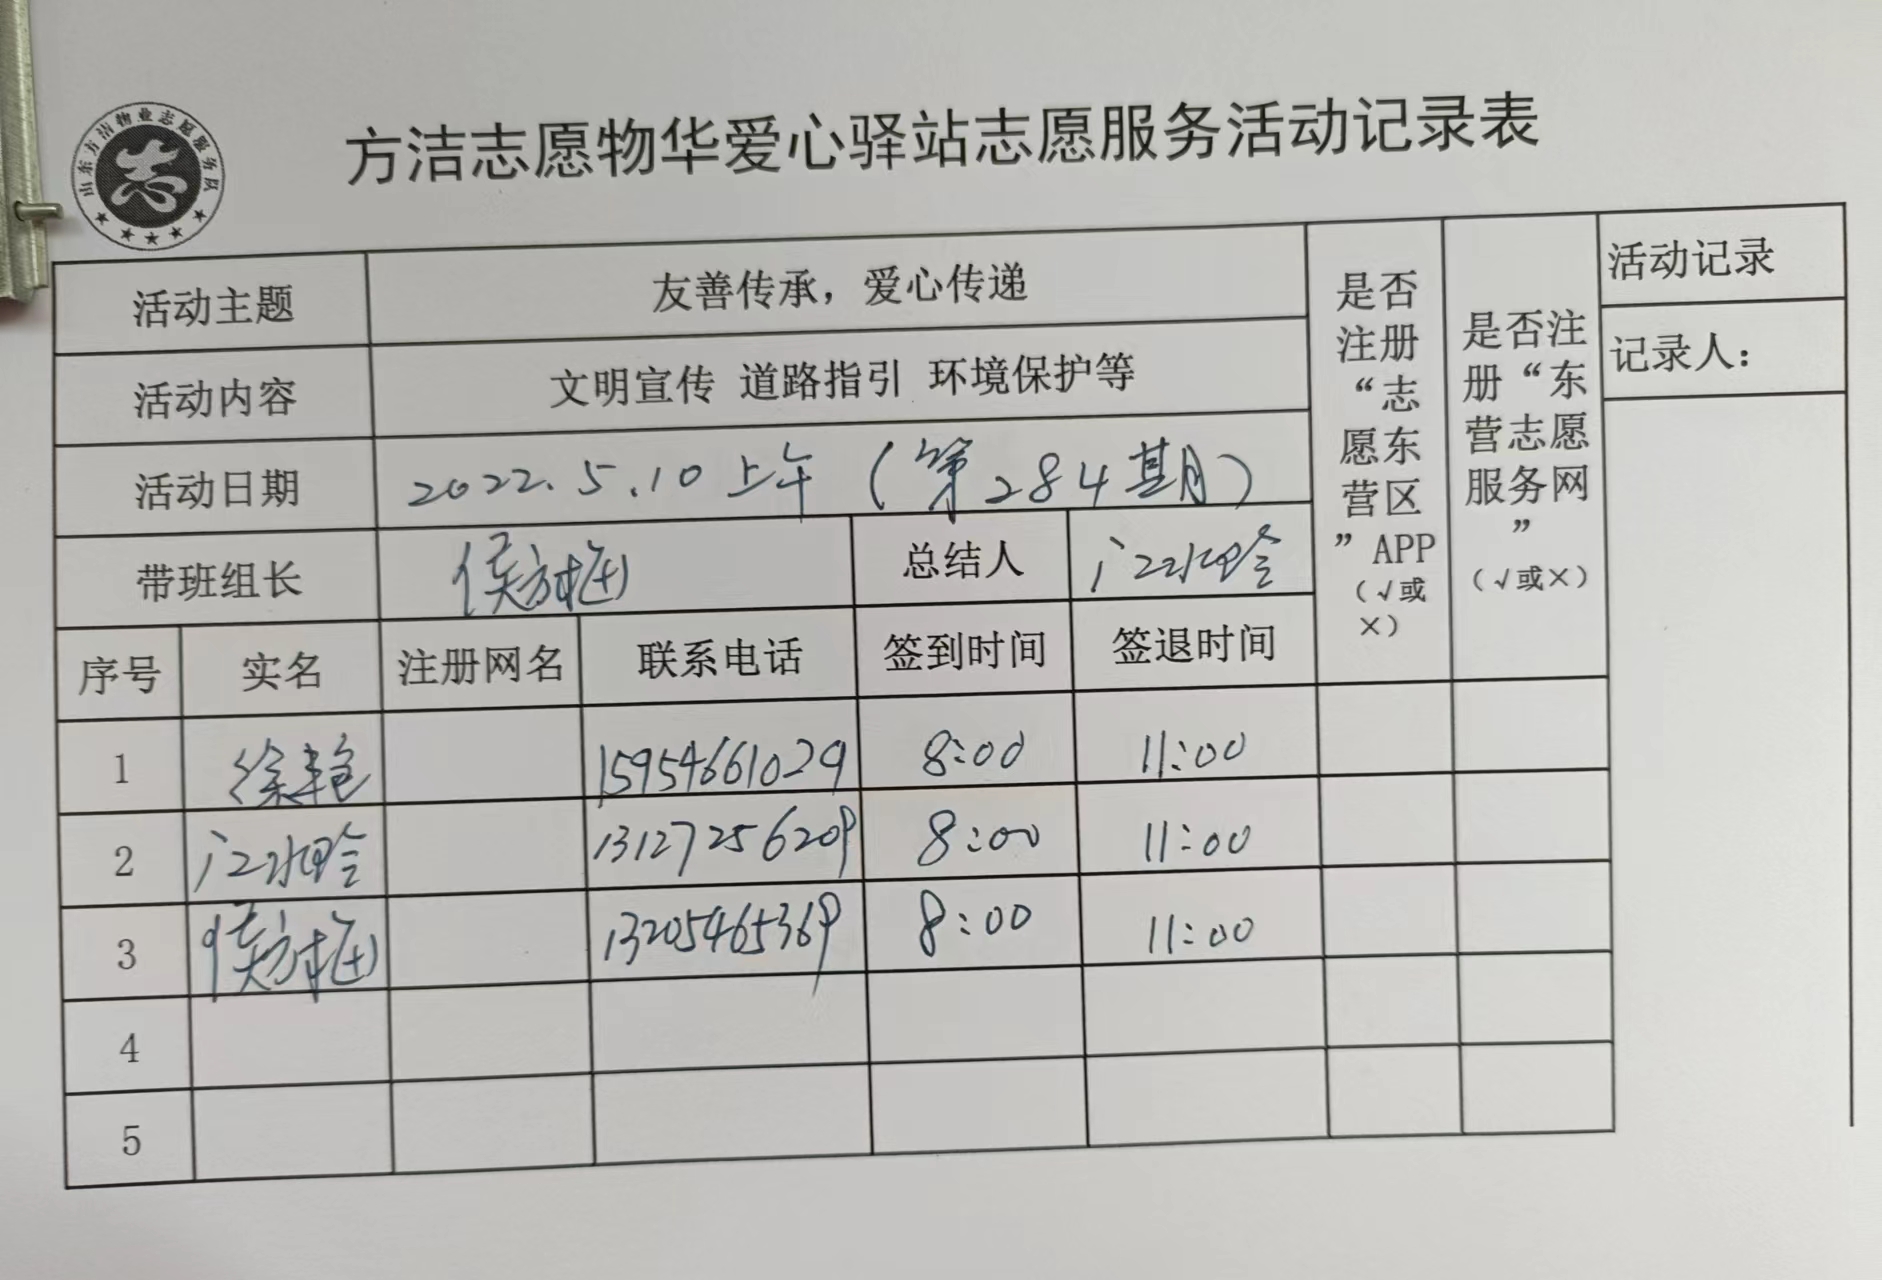 山东方洁物业志愿服务队
方洁志愿物华爱心驿站志愿服务活动记录表
活动主题 友善传承，爱心传递
活动内容 文明宣传 道路指引 环境保护等
活动日期 2022.5.10上午（第284期）
带班组长 侯方 总结人
序号 实名 注册网名 联系电话 签到时间 签退时间
是否
注册
“志
愿东
营区
”APP
（√或
×）
是否注
册“东
营志愿
服务网
”
（√或×）
活动记录
记录人：
1 徐艳 15954661029 8:00 11:00
2 13127256209 8:00 11:00
3 侯方 13205465369 8:00 11:00
4
5